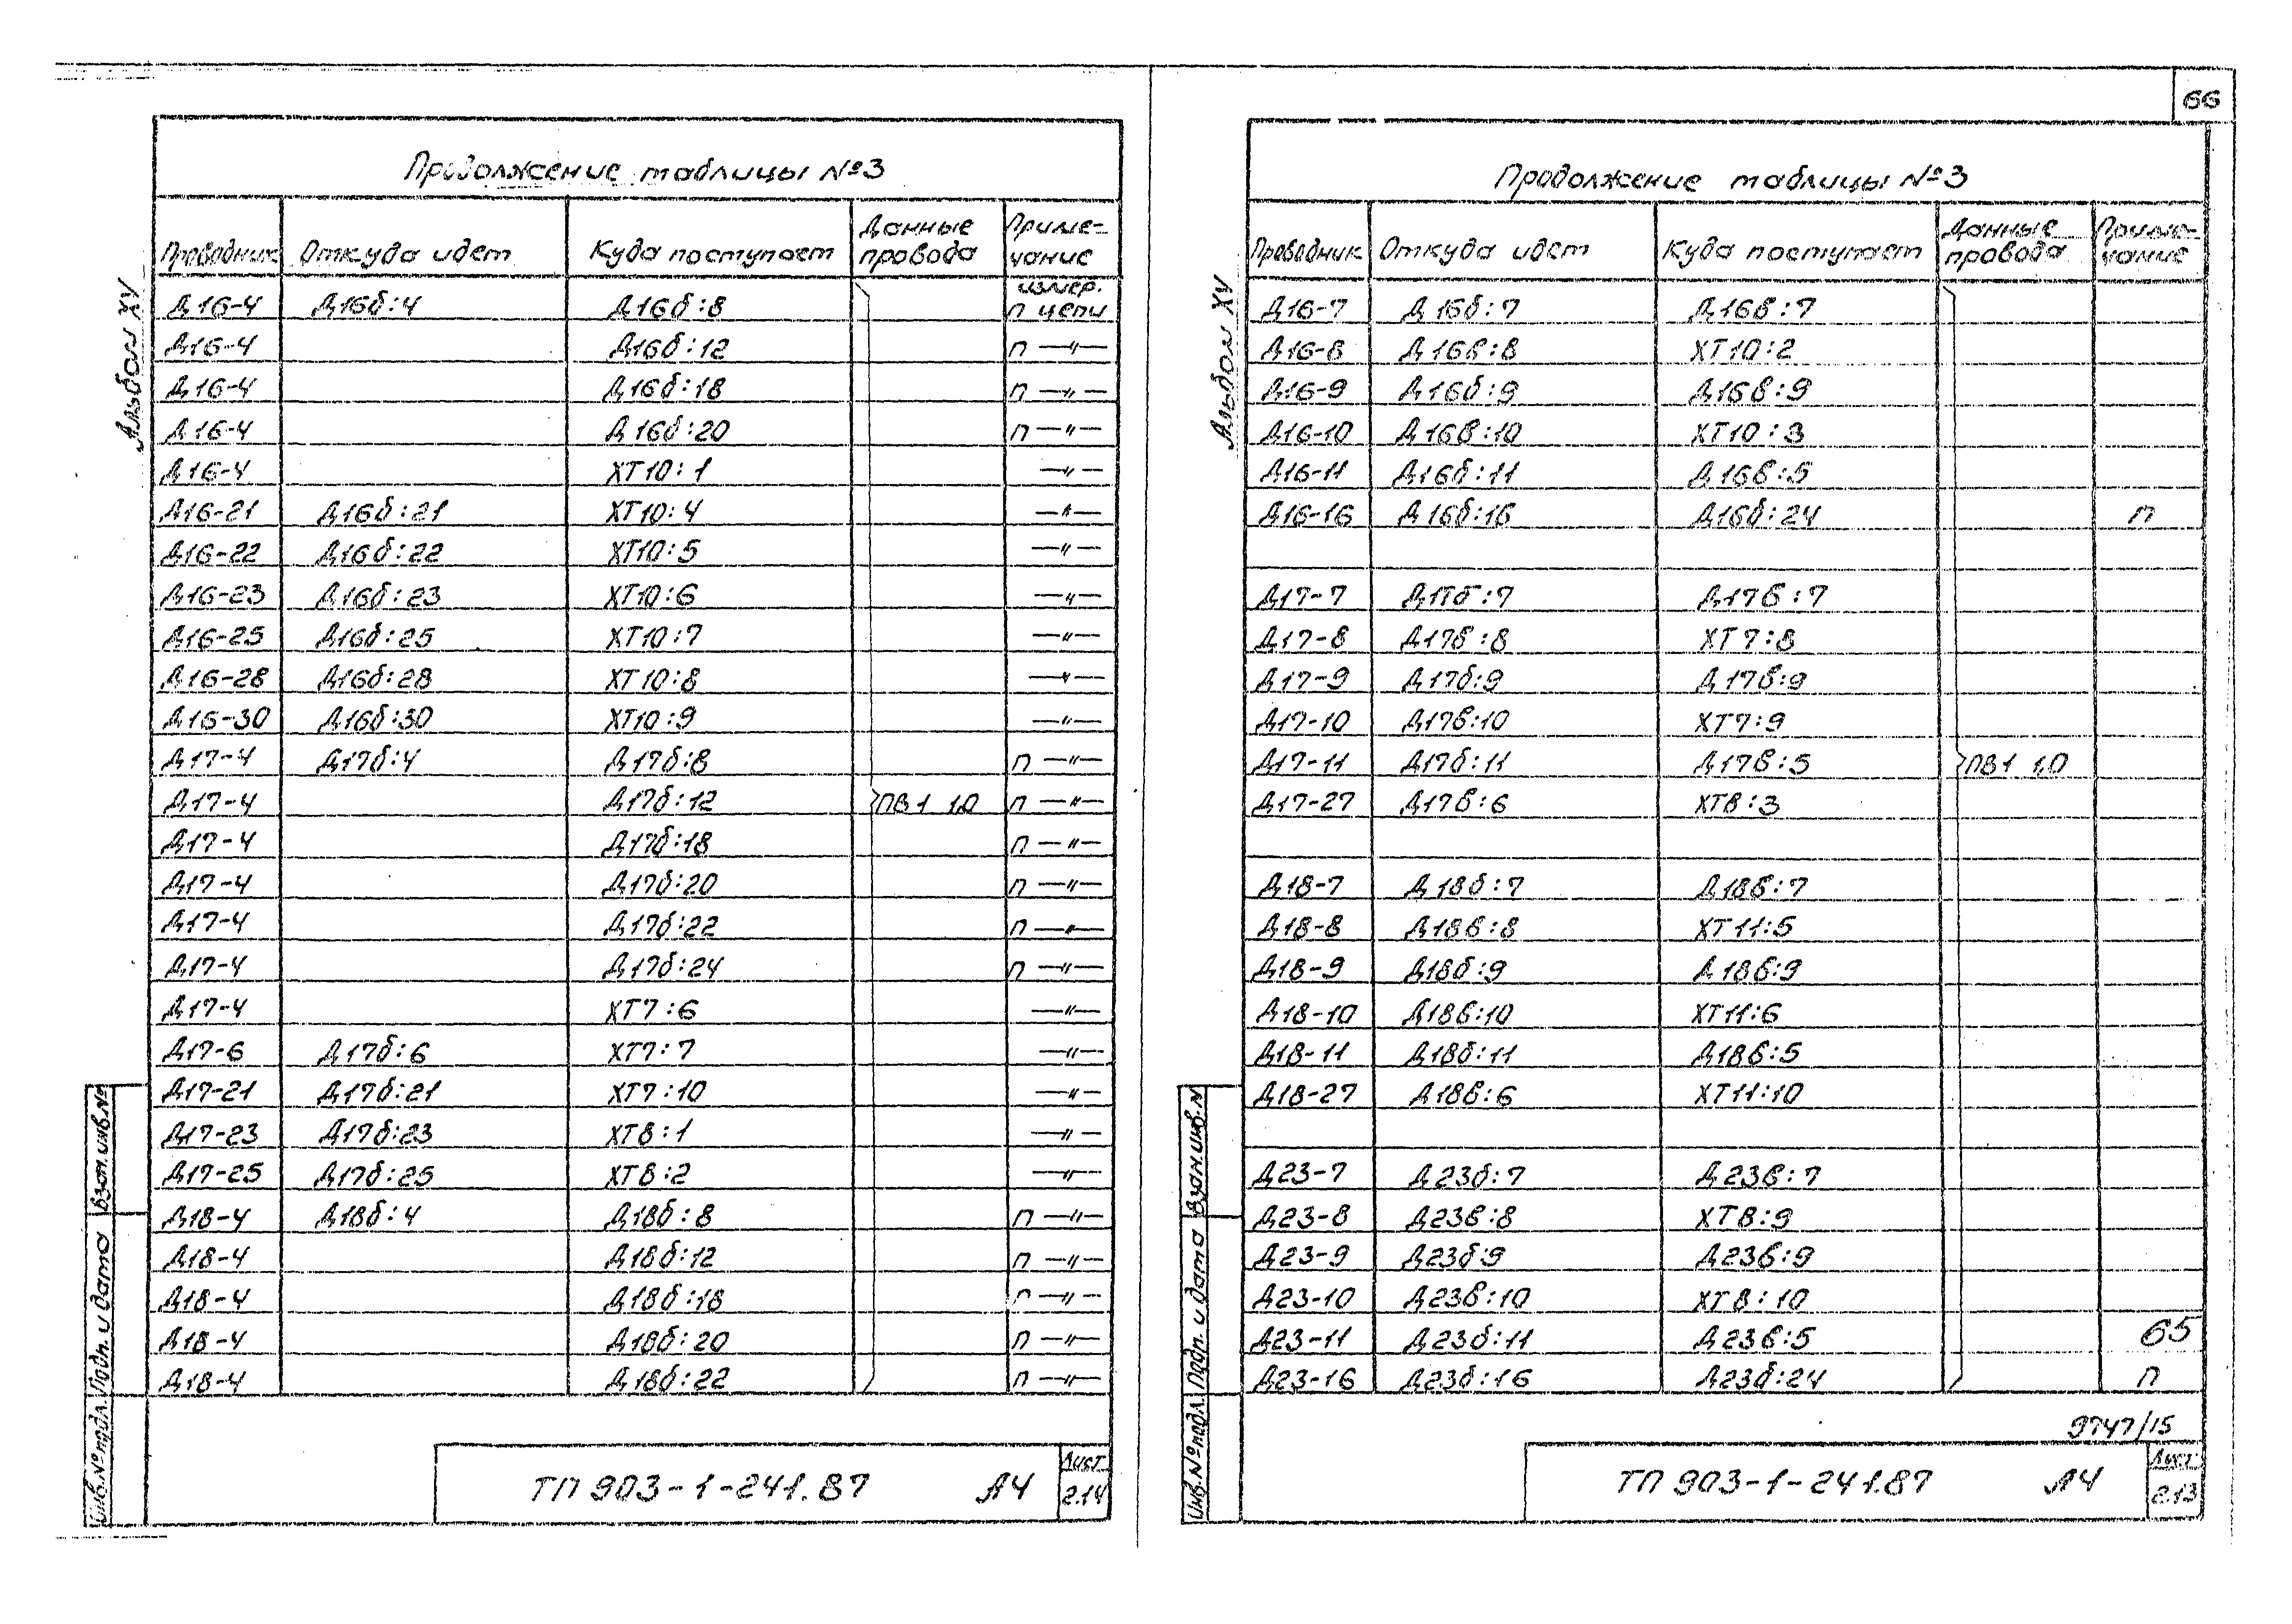 66
Продолжение таблицы №3
Проводник Откуда идет Куда поступает Данные провода Примечание
Д16-4 Д16б:4 Д16б:8 измер. п цепи
Д16-4 Д16б:12 п —〃—
Д16-4 Д16б:18 п —〃—
Д16-4 Д16б:20 п —〃—
Д16-4 ХТ10:1 —〃—
Д16-21 Д16б:21 ХТ10:4 —〃—
Д16-22 Д16б:22 ХТ10:5 —〃—
Д16-23 Д16б:23 ХТ10:6 —〃—
Д16-25 Д16б:25 ХТ10:7 —〃—
Д16-28 Д16б:28 ХТ10:8 —〃—
Д16-30 Д16б:30 ХТ10:9 —〃—
Д17-4 Д17б:4 Д17б:8 п —〃—
Д17-4 Д17б:12 ПВ1 1,0 п —〃—
Д17-4 Д17б:18 п —〃—
Д17-4 Д17б:20 п —〃—
Д17-4 Д17б:22 п —〃—
Д17-4 Д17б:24 п —〃—
Д17-4 ХТ7:6 —〃—
Д17-6 Д17б:6 ХТ7:7 —〃—
Д17-21 Д17б:21 ХТ7:10 —〃—
Д17-23 Д17б:23 ХТ8:1 —〃—
Д17-25 Д17б:25 ХТ8:2 —〃—
Д18-4 Д18б:4 Д18б:8 п —〃—
Д18-4 Д18б:12 п —〃—
Д18-4 Д18б:18 п —〃—
Д18-4 Д18б:20 п —〃—
Д18-4 Д18б:22 п —〃—
Альбом XV
Взам. инв. №
Подп. и дата
Инв. № подл.
ТП 903-1-241.87 А4
Лист
2.14
Продолжение таблицы №3
Проводник Откуда идет Куда поступает Данные провода Примечание
Д16-7 Д16б:7 Д16в:7
Д16-8 Д16в:8 ХТ10:2
Д16-9 Д16б:9 Д16в:9
Д16-10 Д16в:10 ХТ10:3
Д16-11 Д16б:11 Д16в:5
Д16-16 Д16б:16 Д16б:24 п
Д17-7 Д17б:7 Д17в:7
Д17-8 Д17в:8 ХТ7:8
Д17-9 Д17б:9 Д17в:9
Д17-10 Д17в:10 ХТ7:9
Д17-11 Д17б:11 Д17в:5 ПВ1 1,0
Д17-27 Д17в:6 ХТ8:3
Д18-7 Д18б:7 Д18в:7
Д18-8 Д18в:8 ХТ11:5
Д18-9 Д18б:9 Д18в:9
Д18-10 Д18в:10 ХТ11:6
Д18-11 Д18б:11 Д18в:5
Д18-27 Д18в:6 ХТ11:10
Д23-7 Д23б:7 Д23в:7
Д23-8 Д23в:8 ХТ8:9
Д23-9 Д23б:9 Д23в:9
Д23-10 Д23в:10 ХТ8:10
Д23-11 Д23б:11 Д23в:5 65
Д23-16 Д23б:16 Д23б:24 п
Альбом XV
Взам. инв. №
Подп. и дата
Инв. № подл.
9747/15
ТП 903-1-241.87 А4
Лист
2.13